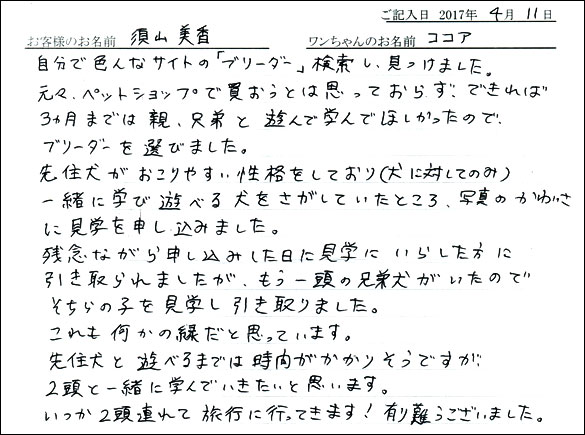 ご記入日 2017年 4月 11日
お客様のお名前 須山 美香 ワンちゃんのお名前 ココア
自分で色んなサイトの「ブリーダー」検索し、見つけました。
元々、ペットショップで買おうとは思っておらず、できれば
3ヵ月までは親、兄弟と遊んで学んでほしかったので、
ブリーダーを選びました。
先住犬がおこりやすい性格をしており(犬に対してのみ)
一緒に学び遊べる犬をさがしていたところ、写真のかわいさ
に見学を申し込みました。
残念ながら申し込みした日に見学にいらした方に
引き取られましたが、もう一頭の兄弟犬がいたので
そちらの子を見学し引き取りました。
これも何かの縁だと思っています。
先住犬と遊べるまでは時間がかかりそうですが、
2頭と一緒に学んでいきたいと思います。
いつか2頭連れて旅行に行ってきます！有り難うございました。